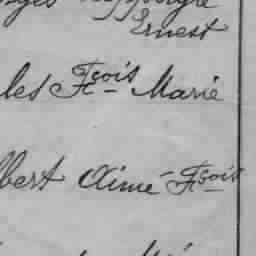 Ernest
les Fçois Marie
lbert Aimé Fçois